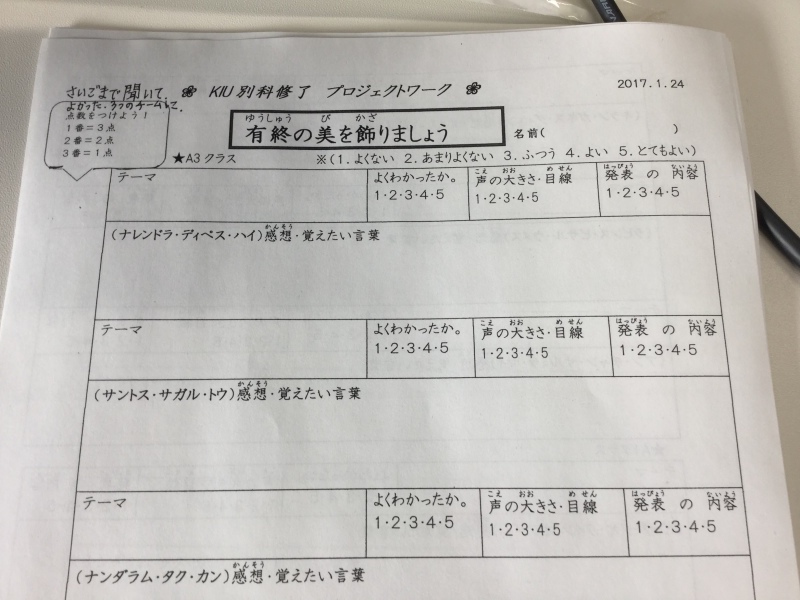 さいごまで聞いて、
よかった、3つのチームに、
点数をつけよう！
1番＝3点
2番＝2点
3番＝1点
KIU別科修了 プロジェクトワーク
2017.1.24
ゆうしゅう び かざ
有終の美を飾りましょう
名前( )
★A3クラス
※(1.よくない 2.あまりよくない 3.ふつう 4.よい 5.とてもよい)
テーマ
よくわかったか。
1・2・3・4・5
こえ おお めせん
声の大きさ・目線
1・2・3・4・5
はっぴょう ないよう
発表 の 内容
1・2・3・4・5
かんそう
(ナレンドラ・ディペス・ハイ)感想・覚えたい言葉
テーマ
よくわかったか。
1・2・3・4・5
こえ おお めせん
声の大きさ・目線
1・2・3・4・5
はっぴょう ないよう
発表 の 内容
1・2・3・4・5
かんそう
(サントス・サガル・トウ)感想・覚えたい言葉
テーマ
よくわかったか。
1・2・3・4・5
こえ おお めせん
声の大きさ・目線
1・2・3・4・5
はっぴょう ないよう
発表 の 内容
1・2・3・4・5
かんそう
(ナンダラム・タク・カン)感想・覚えたい言葉